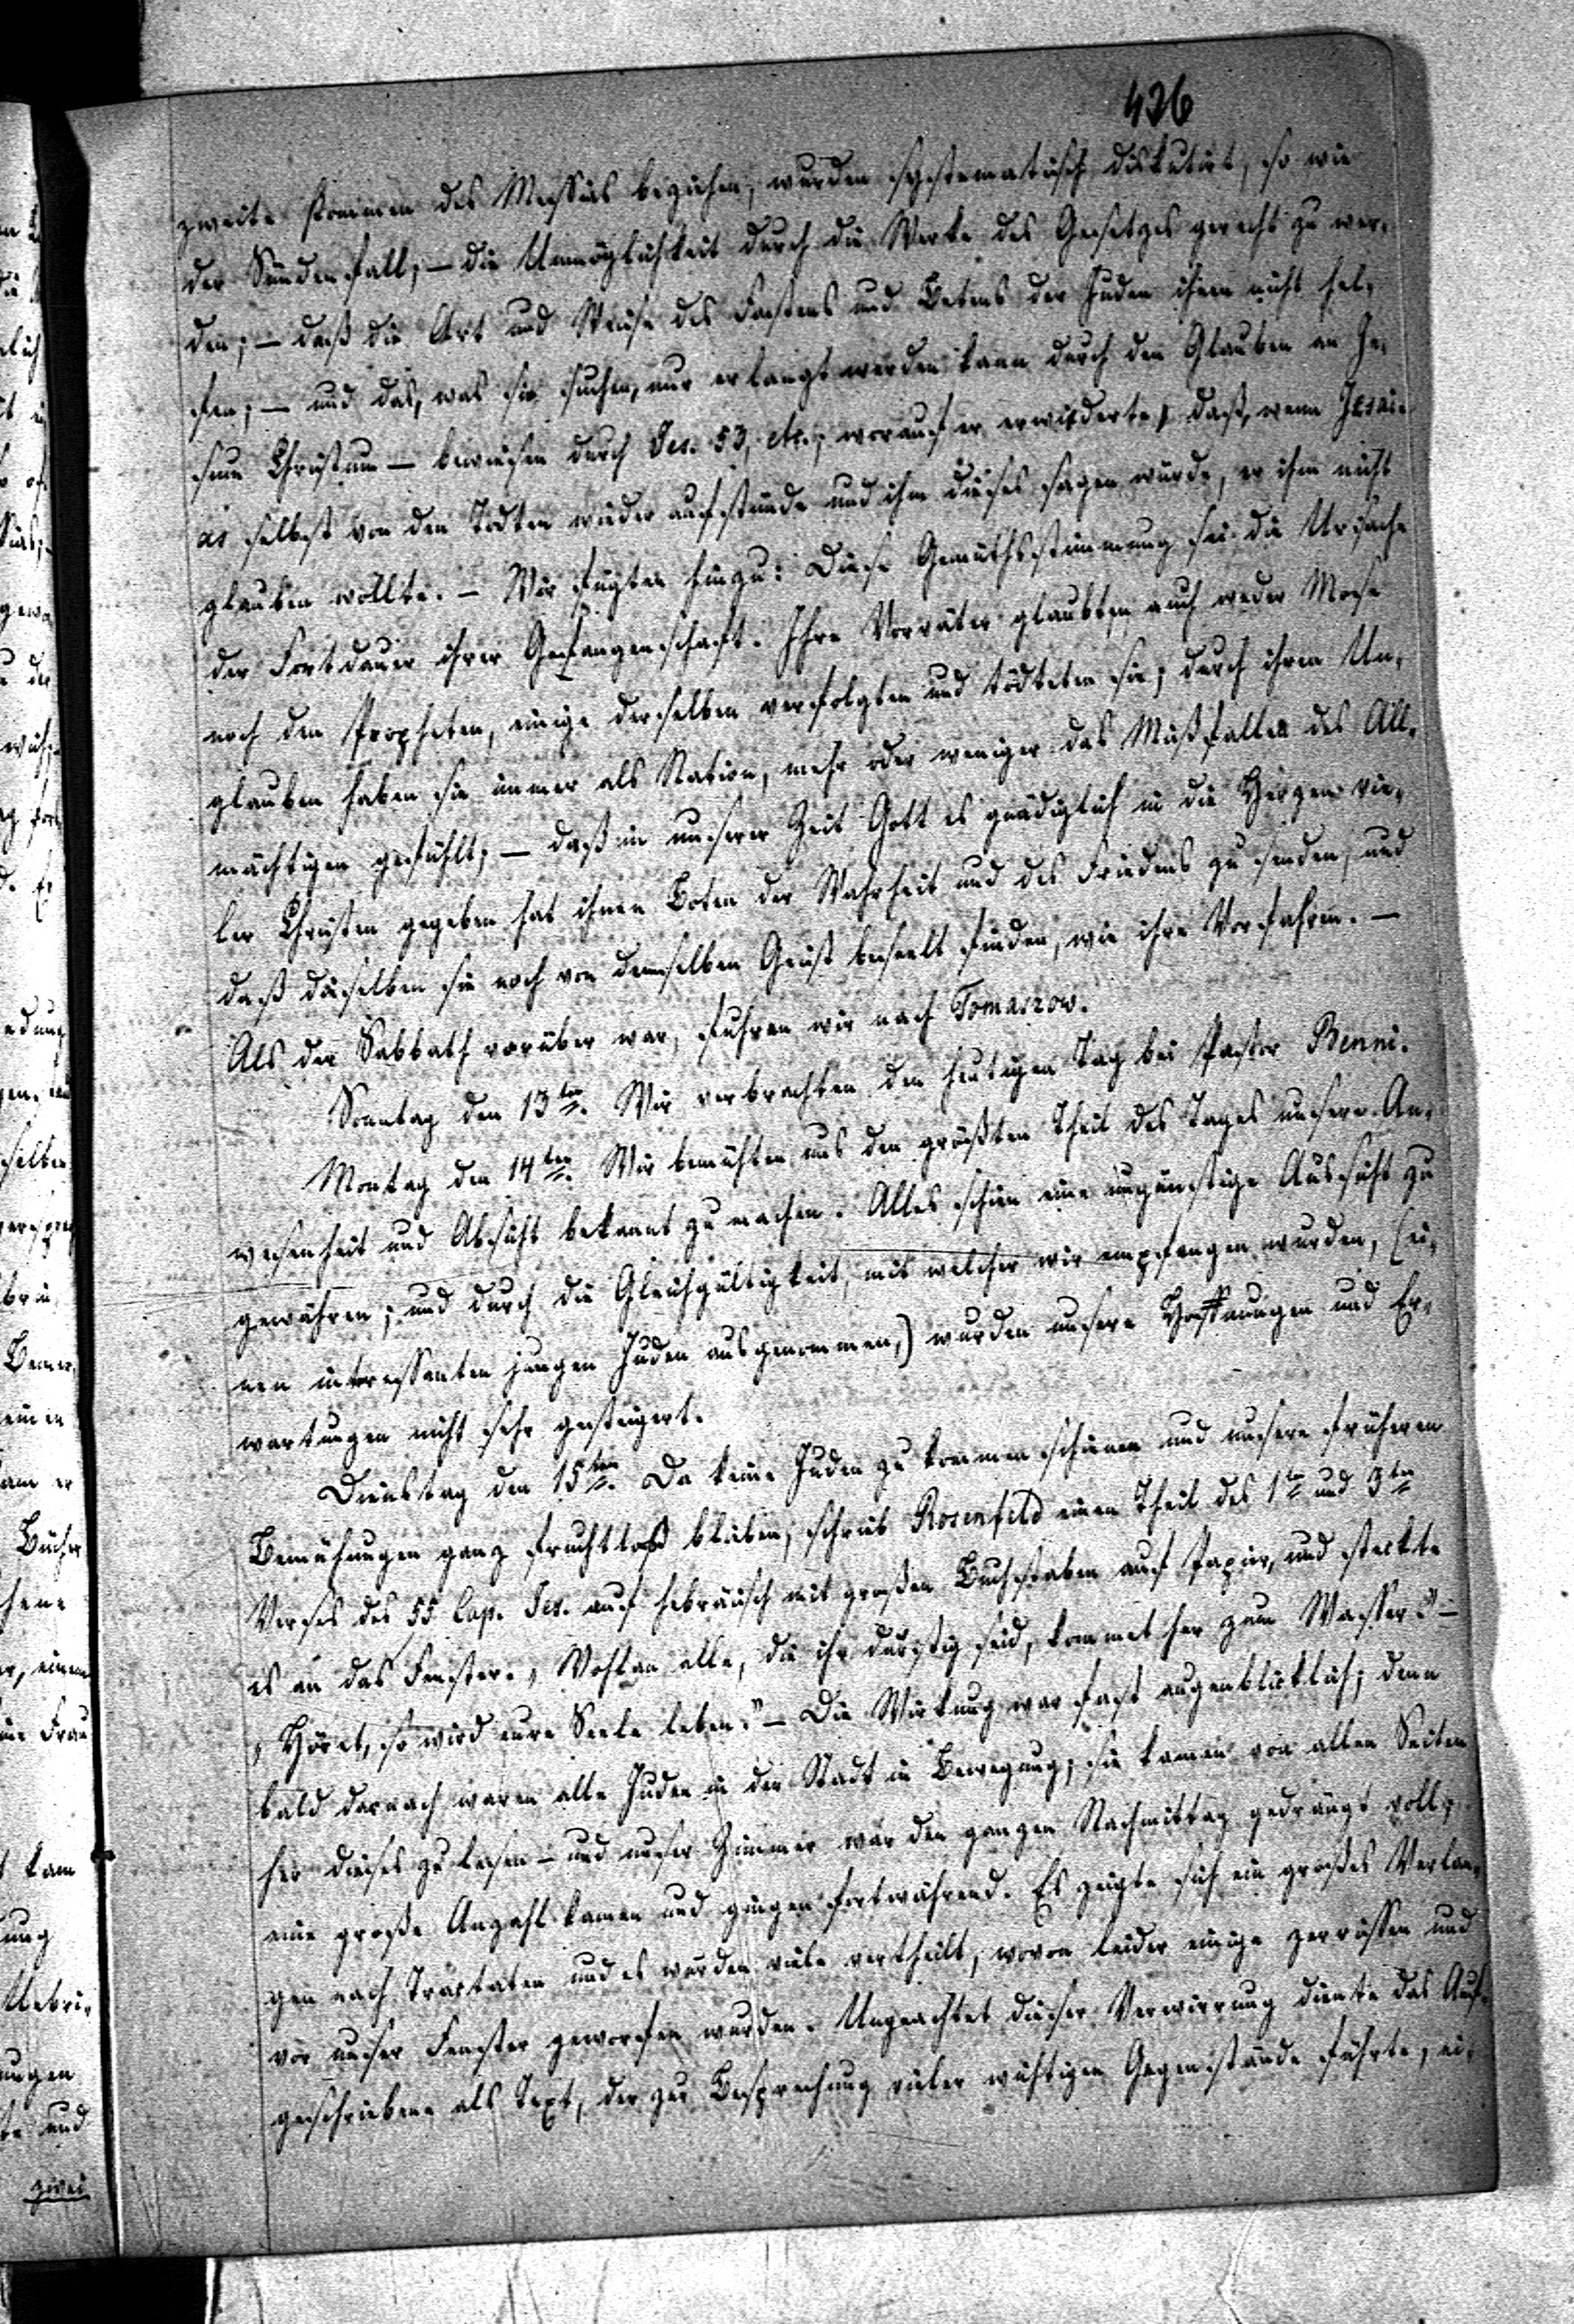 426
zweite Kommen des Messias beziehen, wurden systematisch diskutirt, so wie
der Sündenfall; — die Unmöglichkeit durch die Werke des Gesetzes gerecht zu wer-
den; — daß die Art und Weise des Fastens und Betens der Juden ihnen nicht hel-
fen; — und das, was sie suchen, nur erlangt werden kann durch den Glauben an Je-
sum Christum — bewiesen durch Jes. 53, etc.; worauf er erwiderte, daß, wenn Jesai-
as selbst von den Todten wieder aufstünde und ihm dieses sagen würde, er ihm nicht
glauben wollte. — Wir fügten hinzu: Diese Gemüthsstimmung sei die Ursache
der Fortdauer ihrer Gefangenschaft. Ihre Vorväter glaubten auch weder Mose
noch den Propheten, einige derselben verfolgten und tödteten sie; durch ihren Un-
glauben haben sie immer als Nation, mehr oder weniger das Mißfallen des All-
mächtigen gefühlt; — daß in unserer Zeit Gott es gnädiglich in die Herzen vie-
ler Christen gegeben hat ihnen Boten der Wahrheit und des Friedens zu senden, und
daß dieselben sie noch von demselben Geist beseelt finden, wie ihre Vorfahren. —
Als der Sabbath vorüber war, fuhren wir nach Tomaszow.
Sonntag den 13ten. Wir verbrachten den heutigen Tag bei Pastor Benni.
Montag den 14ten. Wir bemühten uns den größten Theil des Tages unsere An-
wesenheit und Absicht bekannt zu machen. Alles schien eine ungünstige Aussicht zu
gewähren; und durch die Gleichgültigkeit, mit welcher wir empfangen wurden, (ei-
nen interessanten jungen Juden ausgenommen,) wurden unsere Hoffnungen und Er-
wartungen nicht sehr gesteigert.
Dienstag den 15ten. Da keine Juden zu kommen schienen und unsere früheren
Bemühungen ganz fruchtlos blieben, schrieb Rosenfeld einen Theil des 1ten und 3ten
Verses des 55 Cap. Jes. auf hebräisch mit großen Buchstaben auf Papier, und steckte
es an das Fenster. „Wohlan alle, die ihr durstig seid, kommet her zum Wasser." —
„Höret, so wird eure Seele leben." — Die Wirkung war fast augenblicklich; denn
bald darnach waren alle Juden in der Stadt in Bewegung; sie kamen von allen Seiten
her dieses zu lesen — und unser Zimmer war den ganzen Nachmittag gedrängt voll;
eine große Anzahl kamen und gingen fortwährend. Es zeigte sich ein großes Verlan-
gen nach Tractaten und es wurden viele vertheilt, wovon leider einige zerrissen und
vor unser Fenster geworfen wurden. Ungeachtet dieser Verwirrung diente das Auf-
geschriebene als Text, der zur Besprechung vieler wichtigen Gegenstände führte, ei-
zwei